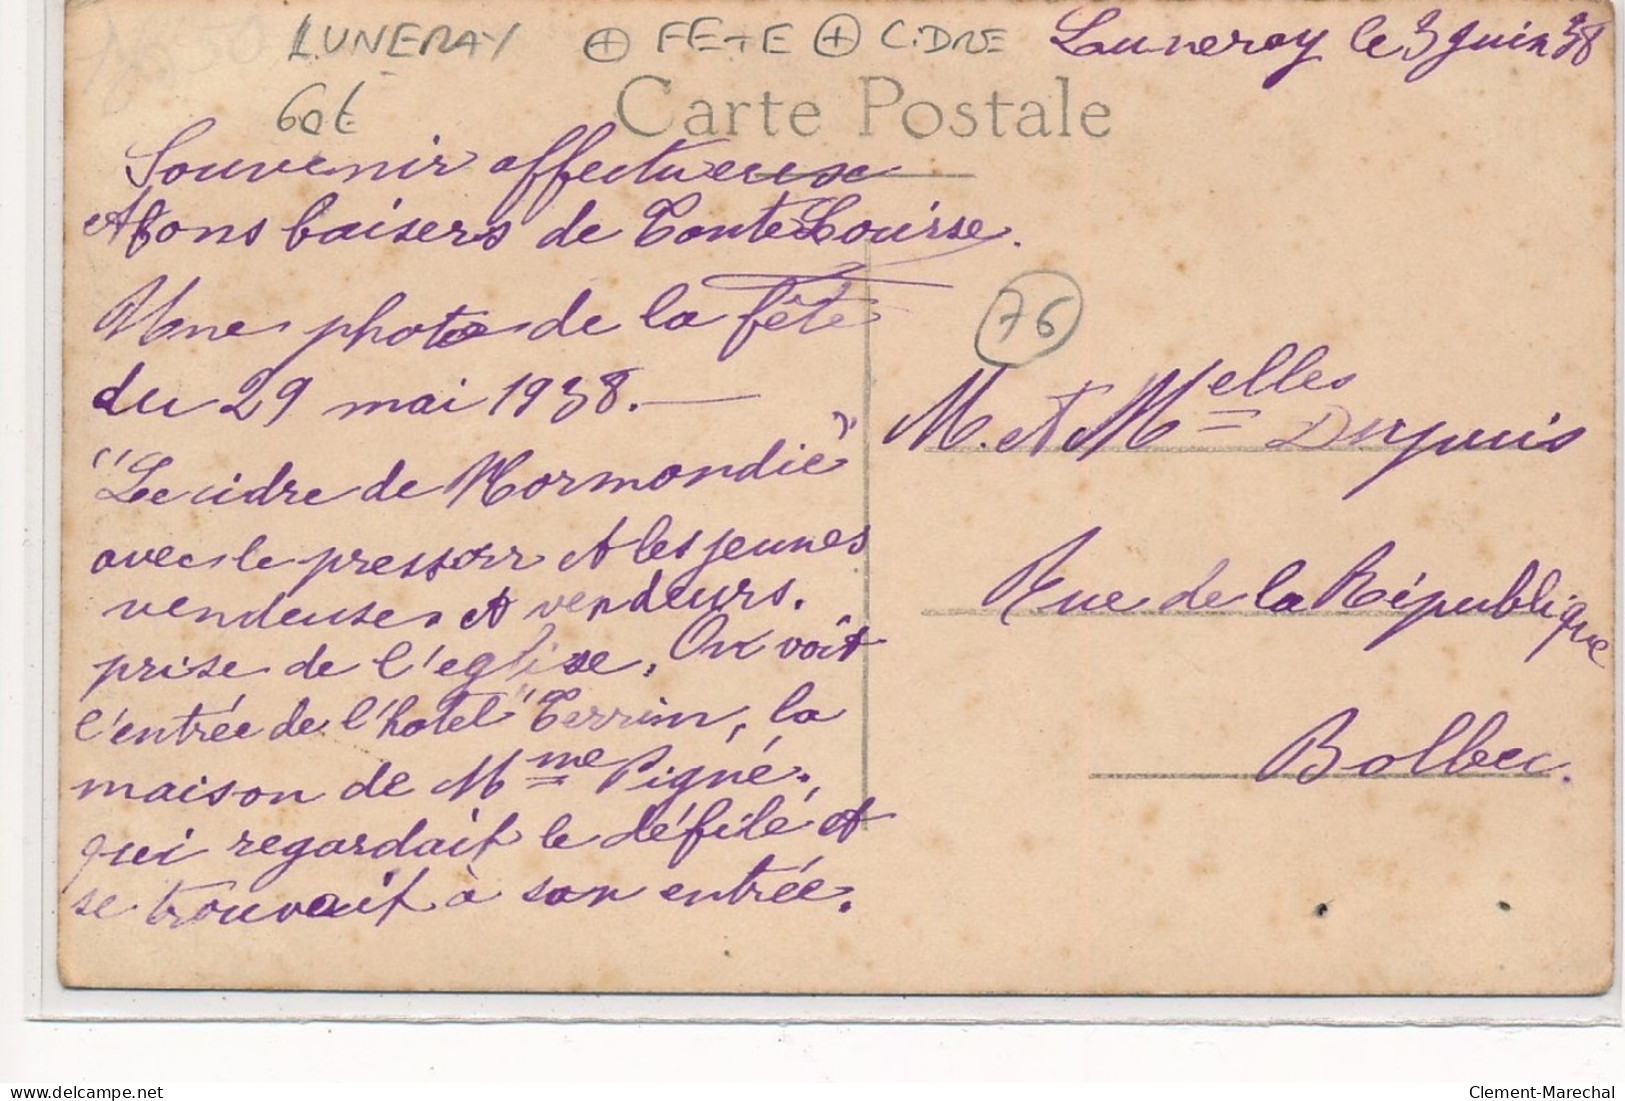 LUNERAY ⊕ FETE ⊕ CIDRE
60€
Luneray le 3 Juin 38
Carte Postale
Souvenir affectueux
& bons baisers de Tante Louise.
Une photo de la fête
du 29 mai 1938. —
"Le cidre de Normandie"
avec le pressoir et les jeunes
vendeuses et vendeurs.
prise de l'eglise. On voit
l'entrée de l'hotel Terrien, la
maison de Mme Pigné,
qui regardait le défilé et
se trouvait à son entrée.
76
M. et Melles Dupuis
Rue de la République
Bolbec.
www.delcampe.net
Clement-Marechal